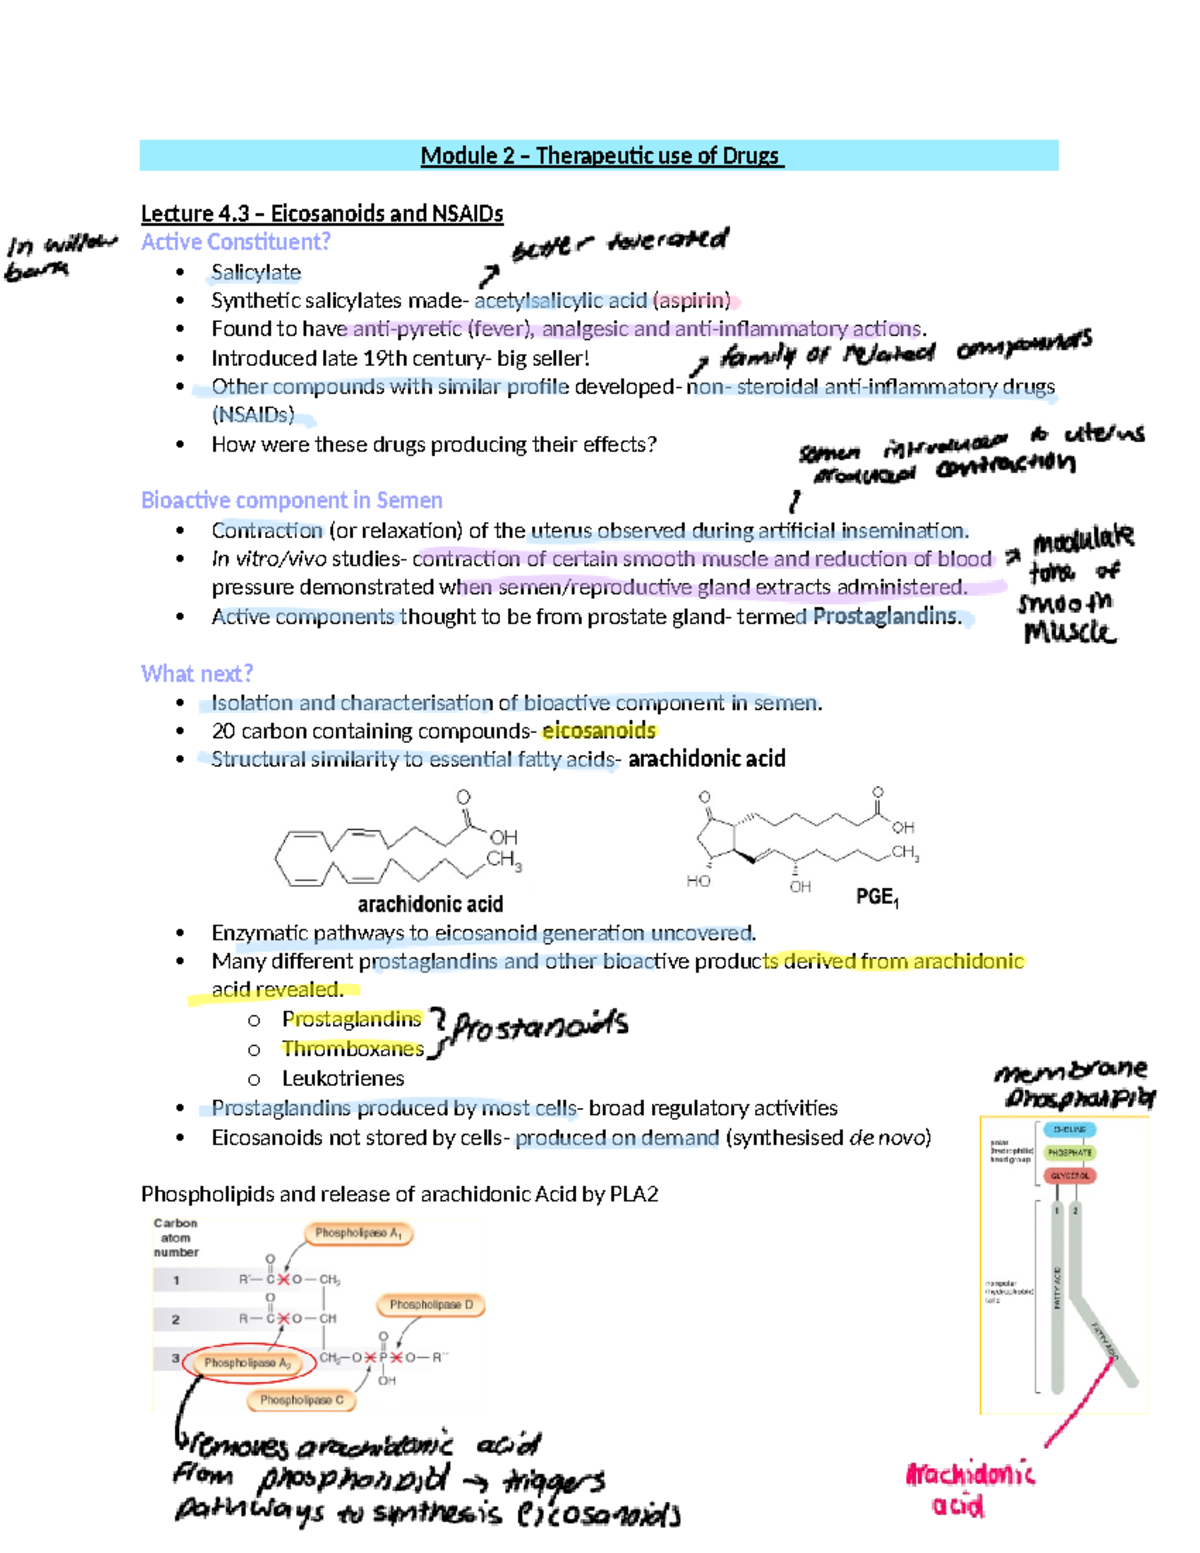 Module 2 – Therapeutic use of Drugs
Lecture 4.3 – Eicosanoids and NSAIDs
In willow
bark
Active Constituent?
better tolerated
• Salicylate
• Synthetic salicylates made- acetylsalicylic acid (aspirin)
• Found to have anti-pyretic (fever), analgesic and anti-inflammatory actions.
• Introduced late 19th century- big seller!
family of related compounds
• Other compounds with similar profile developed- non- steroidal anti-inflammatory drugs
(NSAIDs)
• How were these drugs producing their effects?
semen introduced to uterus
produced contraction
Bioactive component in Semen
• Contraction (or relaxation) of the uterus observed during artificial insemination.
• In vitro/vivo studies- contraction of certain smooth muscle and reduction of blood
pressure demonstrated when semen/reproductive gland extracts administered.
→ modulate
tone of
smooth
muscle
• Active components thought to be from prostate gland- termed Prostaglandins.
What next?
• Isolation and characterisation of bioactive component in semen.
• 20 carbon containing compounds- eicosanoids
• Structural similarity to essential fatty acids- arachidonic acid
O
OH
CH3
arachidonic acid
O
O
OH
CH3
HO
OH
PGE1
• Enzymatic pathways to eicosanoid generation uncovered.
• Many different prostaglandins and other bioactive products derived from arachidonic
acid revealed.
o Prostaglandins
o Thromboxanes
Prostanoids
o Leukotrienes
• Prostaglandins produced by most cells- broad regulatory activities
• Eicosanoids not stored by cells- produced on demand (synthesised de novo)
membrane
phospholipid
CHOLINE
PHOSPHATE
GLYCEROL
polar
(hydrophilic)
head group
1 2
nonpolar
(hydrophobic)
tails
FATTY ACID
FATTY ACID
Arachidonic
acid
Phospholipids and release of arachidonic Acid by PLA2
Carbon
atom
number
Phospholipase A1
O
1 R'—C—O—CH2
O
Phospholipase D
2 R—C—O—CH
O
3 Phospholipase A2 CH2—O—P—O—R''
OH
Phospholipase C
removes arachidonic acid
from phospholipid → triggers
pathways to synthesis eicosanoids